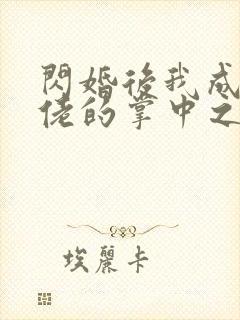 閃婚後我成
佬的掌中之
埃麗卡